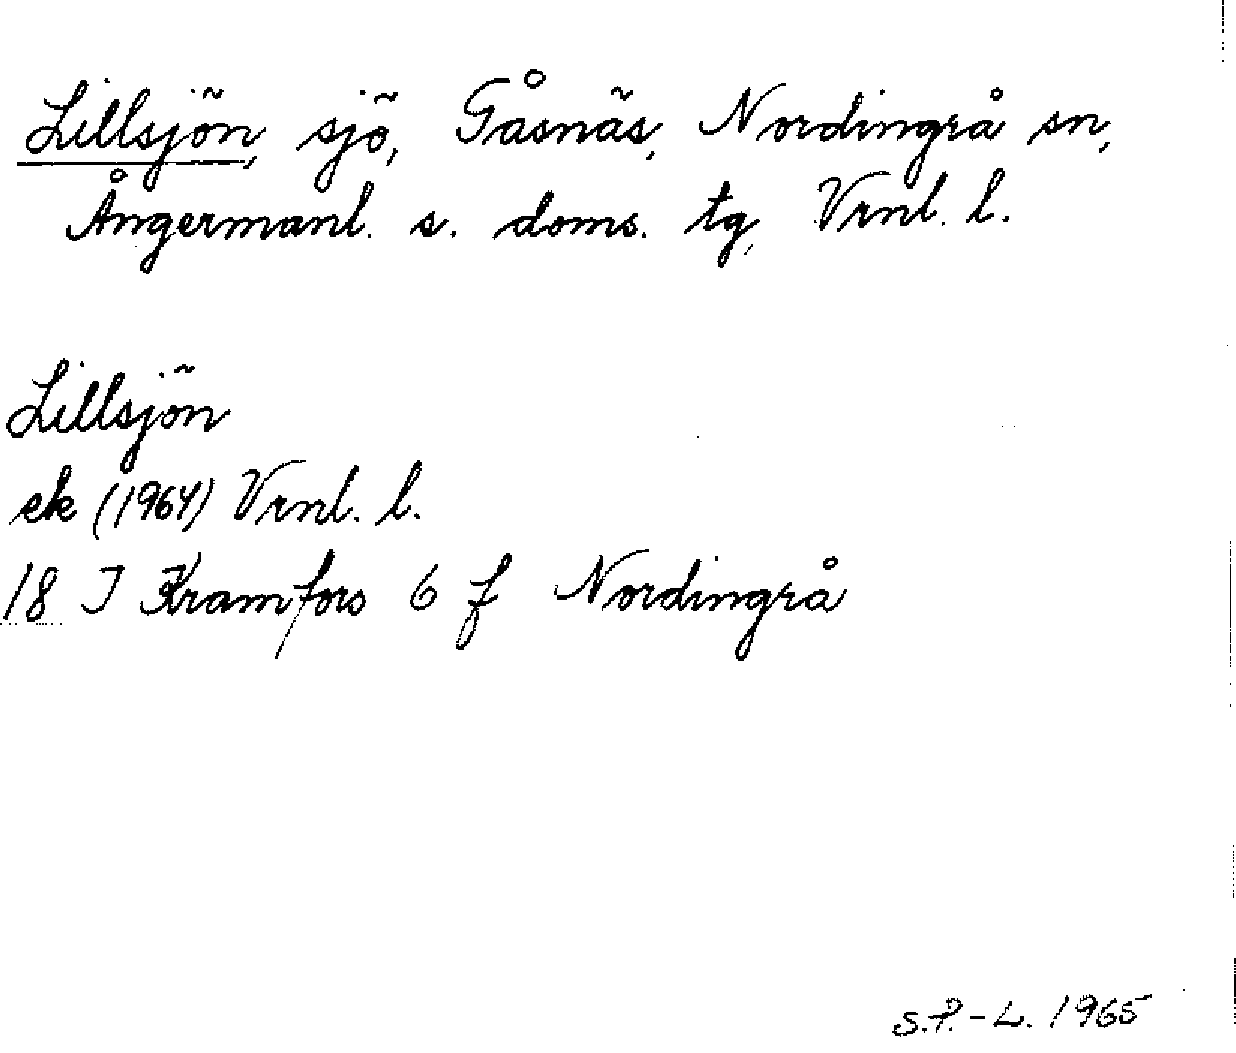 Lillsjön, sjö, Gåsnäs, Nordingrå sn,
Ångermanl. s. doms. tg, Vrnl. l.
Lillsjön
ek (1964) Vrnl. l.
18 I Kramfors 6 f Nordingrå
S.P.-L. 1965